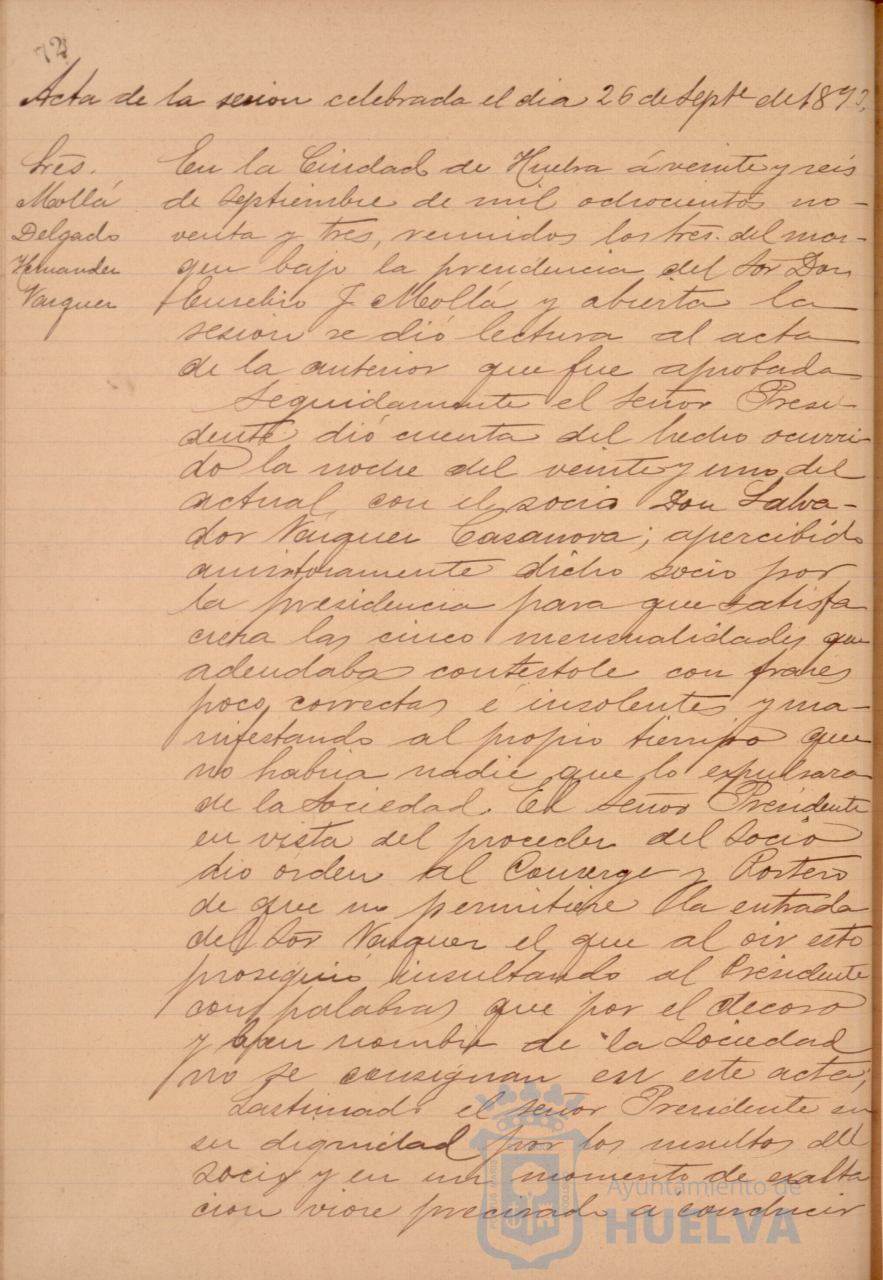 72
Acta de la sesion celebrada el dia 26 de Septe de 1893,
Sres.
Mollá
Delgado
Hernandez
Vazquez
En la Ciudad de Huelva á veinte y seis
de Septiembre de mil ochocientos no-
venta y tres, reunidos los Sres. del mar-
gen bajo la presidencia del Sor Don
Eusebio J. Mollá y abierta la
sesion se dió lectura al acta
de la anterior que fue aprobada
Seguidamente el Señor Presi-
dente dió cuenta del hecho ocurri-
do la noche del veinte y uno del
actual, con el socio Don Salva-
dor Vázquez Casanova; apercibido
amistosamente dicho socio por
la presidencia para que satisfa
ciera las cinco mensualidades que
adeudaba contestole con frases
poco correctas é insolentes y ma-
nifestando al propio tiempo que
no habria nadie que lo expulsara
de la Sociedad. El Señor Presidente
en vista del proceder del Socio
dio órden al Conserge y Portero
de que no permitiere la entrada
del Sor Vazquez el que al oir esto
prosiguió insultando al Presidente
con palabras que por el decoro
y buen nombre de la Sociedad
no se consignan en este acta;
Lastimado el Señor Presidente en
su dignidad por los insultos del
Socio y en un momento de exalta
cion viose precisado a conducir
Ayuntamiento de
HUELVA